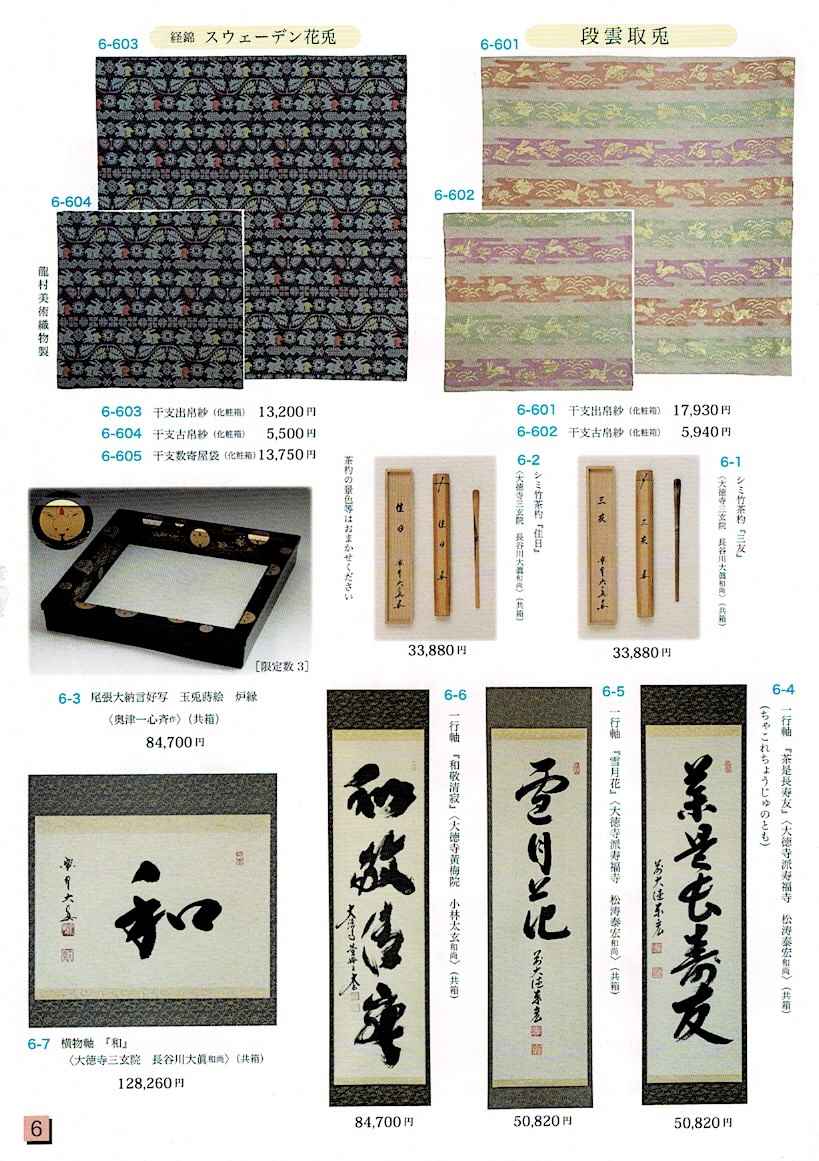 6-603
経錦 スウェーデン花兎
6-601
段雲取兎
6-604
6-602
龍村美術織物製
6-603 干支出帛紗(化粧箱) 13,200円
6-604 干支古帛紗(化粧箱) 5,500円
6-605 干支数寄屋袋(化粧箱) 13,750円
6-601 干支出帛紗(化粧箱) 17,930円
6-602 干支古帛紗(化粧箱) 5,940円
6-1
シミ竹茶杓『三友』
〈大徳寺三玄院 長谷川大眞和尚〉(共箱)
三友
33,880円
6-2
シミ竹茶杓『佳日』
〈大徳寺三玄院 長谷川大眞和尚〉(共箱)
佳日
33,880円
茶杓の景色等はおまかせください
[限定数3]
6-3 尾張大納言好写 玉兎蒔絵 炉縁
〈奥津一心斉作〉(共箱)
84,700円
6-4
一行軸 『茶是長寿友』〈大徳寺派寿福寺 松涛泰宏和尚〉(共箱)
(ちゃこれちょうじゅのとも)
茶是長寿友
50,820円
6-5
一行軸 『雪月花』〈大徳寺派寿福寺 松涛泰宏和尚〉(共箱)
雪月花
50,820円
6-6
一行軸 『和敬清寂』〈大徳寺黄梅院 小林太玄和尚〉(共箱)
和敬清寂
84,700円
和
6-7 横物軸 『和』
〈大徳寺三玄院 長谷川大眞和尚〉(共箱)
128,260円
6